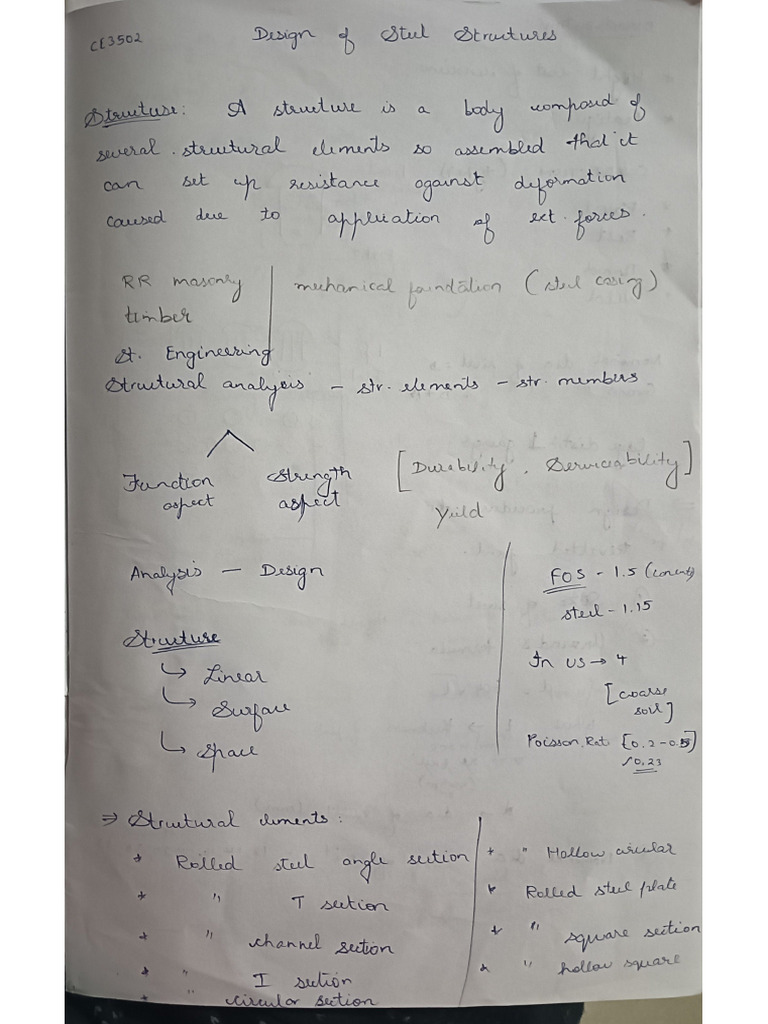 CE3502
Design of Steel Structures
Structure: A structure is a body composed of
several structural elements so assembled that it
can set up resistance against deformation
caused due to application of ext. forces.
RR masonry
timber
mechanical foundation (steel casing)
St. Engineering
Structural analysis - str. elements - str. members
Function
aspect
Strength
aspect
[Durability, Serviceability]
Yield
Analysis — Design
FOS - 1.5 (concrete)
steel - 1.15
In US → 4
[coarse
soil]
Poisson. Rat [0.2-0.5]
0.23
Structure
↳ Linear
↳ Surface
↳ Space
⇒ Structural elements:
* Rolled steel angle section
* " T section
* " channel section
* " I section
* " circular section
* " Hollow circular
* Rolled steel plate
* " square section
* " hollow square